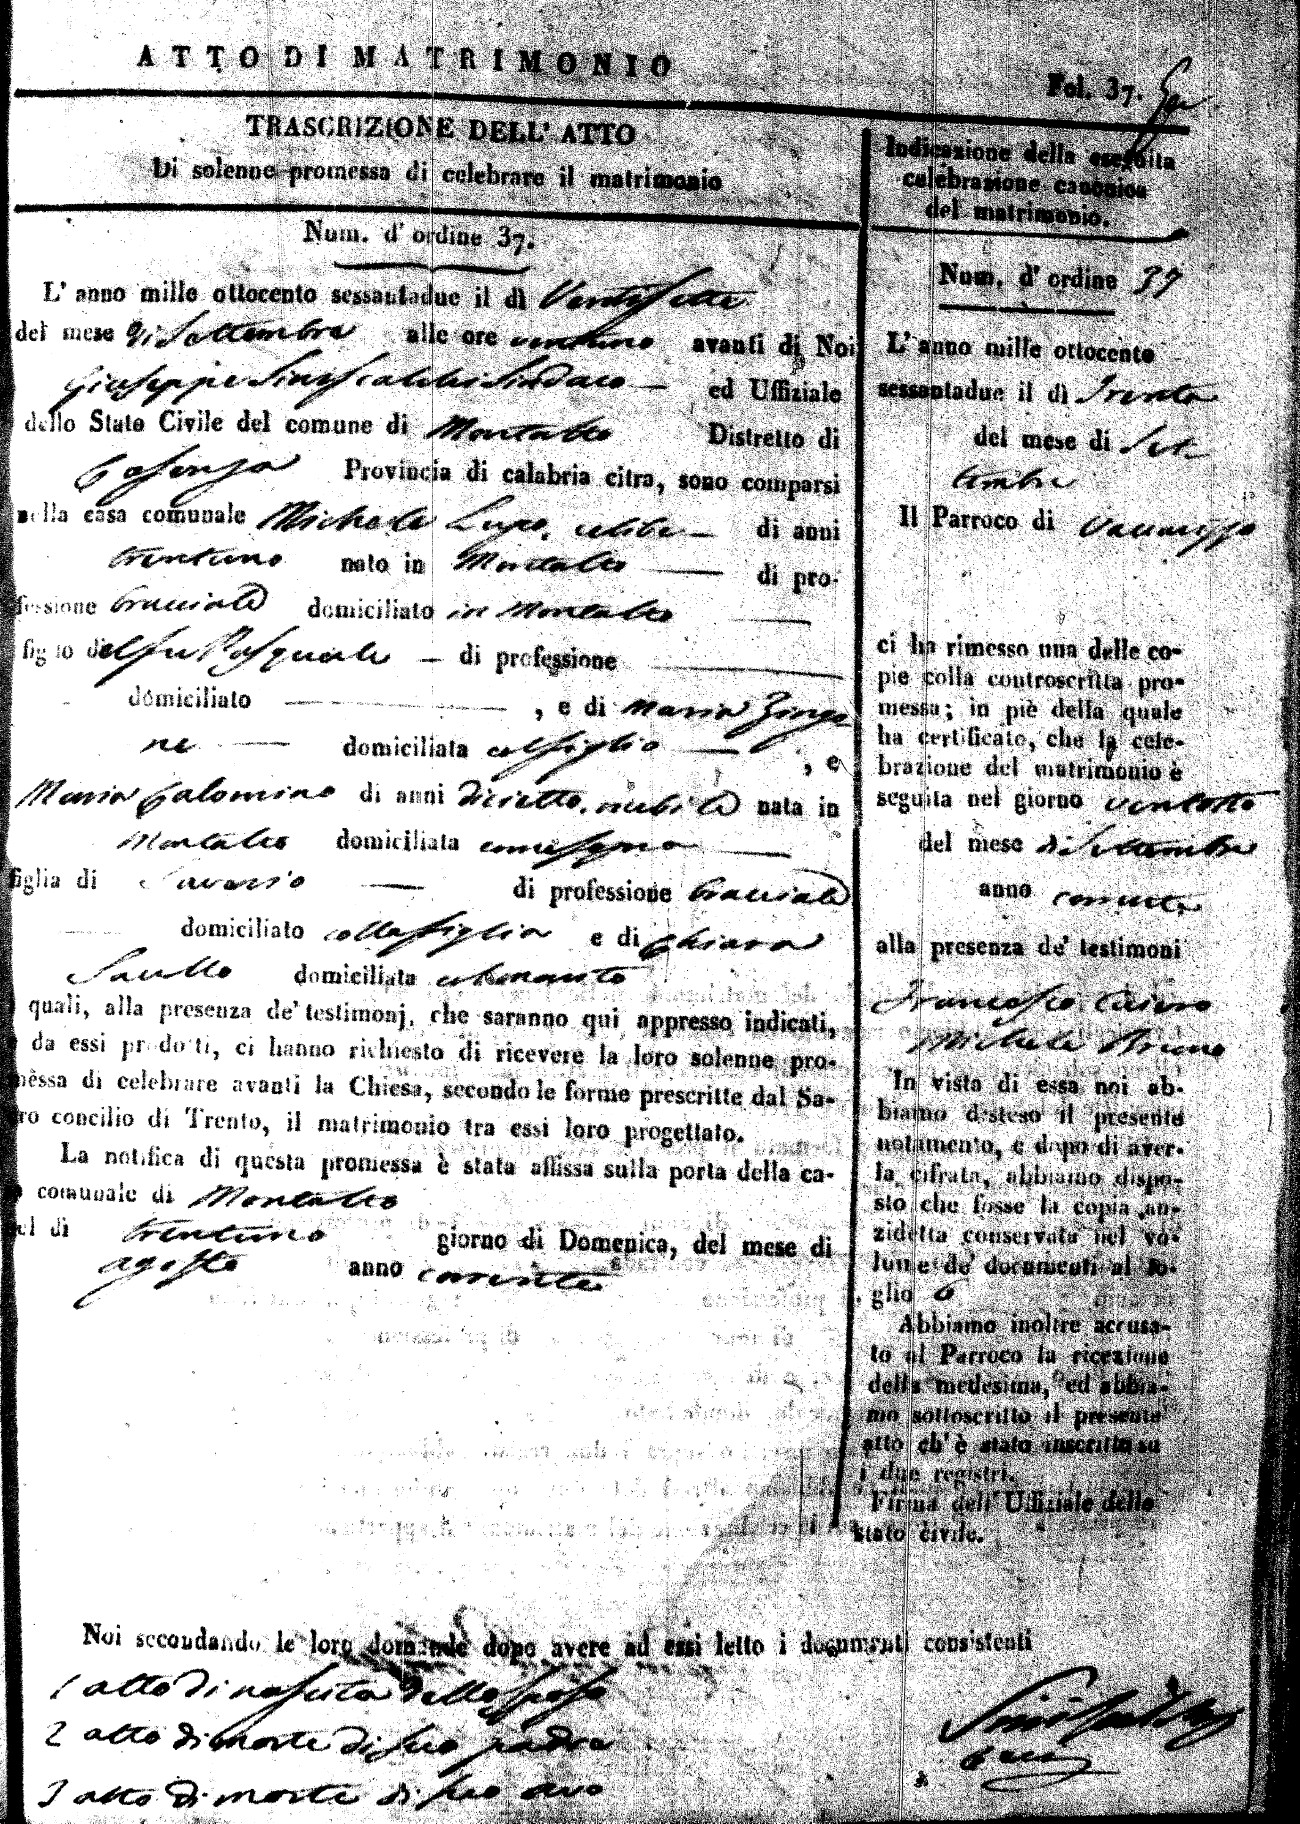 ATTO DI MATRIMONIO
Fol. 37.
TRASCRIZIONE DELL' ATTO
Di solenne promessa di celebrare il matrimonio
Num. d' ordine 37.
L' anno mille ottocento sessantadue il dì Ventisette
del mese di Settembre alle ore ventuno avanti di Noi
Giuseppe Siniscalchi Sindaco ed Uffiziale
dello Stato Civile del comune di Montalto Distretto di
Cosenza Provincia di calabria citra, sono comparsi
nella casa comunale Michele Lupo, celibe di anni
trentuno nato in Montalto di pro-
fessione bracciale domiciliato in Montalto
figlio del fu Pasquale di professione
domiciliato , e di Maria Zinga
ne domiciliata col figlio , e
Maria Calomino di anni diciotto, nubile nata in
Montalto domiciliata
figlia di Saverio di professione bracciale
domiciliato colla figlia e di Chiara
Saullo domiciliata
quali, alla presenza de' testimonj, che saranno qui appresso indicati,
da essi prodotti, ci hanno richiesto di ricevere la loro solenne pro-
messa di celebrare avanti la Chiesa, secondo le forme prescritte dal Sa-
ro concilio di Trento, il matrimonio tra essi loro progettato.
La notifica di questa promessa è stata affissa sulla porta della ca-
comunale di Montalto
el dì trentuno giorno di Domenica, del mese di
agosto anno corrente
Indicazione della eseguita
celebrazione canonica
del matrimonio.
Num. d' ordine 37
L' anno mille ottocento
sessantadue il dì Trenta
del mese di Set-
tembre
Il Parroco di Vaccarizzo
ci ha rimesso una delle co-
pie colla controscritta pro-
messa; in piè della quale
ha certificato, che la cele-
brazione del matrimonio è
seguita nel giorno ventotto
del mese di Settembre
anno corrente
alla presenza de' testimoni
Francesco
Michele Bruno
In vista di essa noi ab-
biamo disteso il presente
notamento, e dopo di aver-
la cifrata, abbiamo dispo-
sto che fosse la copia an-
zidetta conservata nel vo-
lume de' documenti al fo-
glio 6
Abbiamo inoltre accusa-
to al Parroco la ricezione
della medesima, ed abbia-
mo sottoscritto il presente
atto ch' è stato inscritto su
i due registri.
Firma dell' Uffiziale dello
stato civile.
Noi secondando le loro domande dopo avere ad essi letto i documenti consistenti
1 atto di nascita dello sposo
2 atto di morte di suo padre
3 atto di morte di suo avo